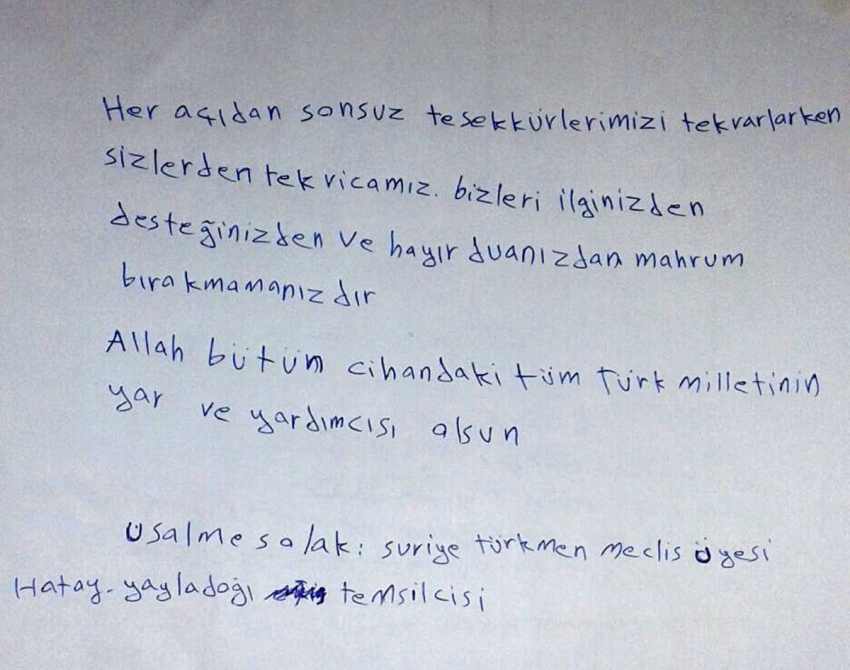 Her açıdan sonsuz tesekkürlerimizi tekvarlarken
sizlerden tek vicamız. bizleri ilginizden
desteğinizden ve hayır duanızdan mahrum
bırakmamanızdır
Allah bütün cihandaki tüm Türk milletinin
yar ve yardımcısı olsun
Usalme salak: suriye türkmen meclis üyesi
Hatay-yayladoğı temsilcisi